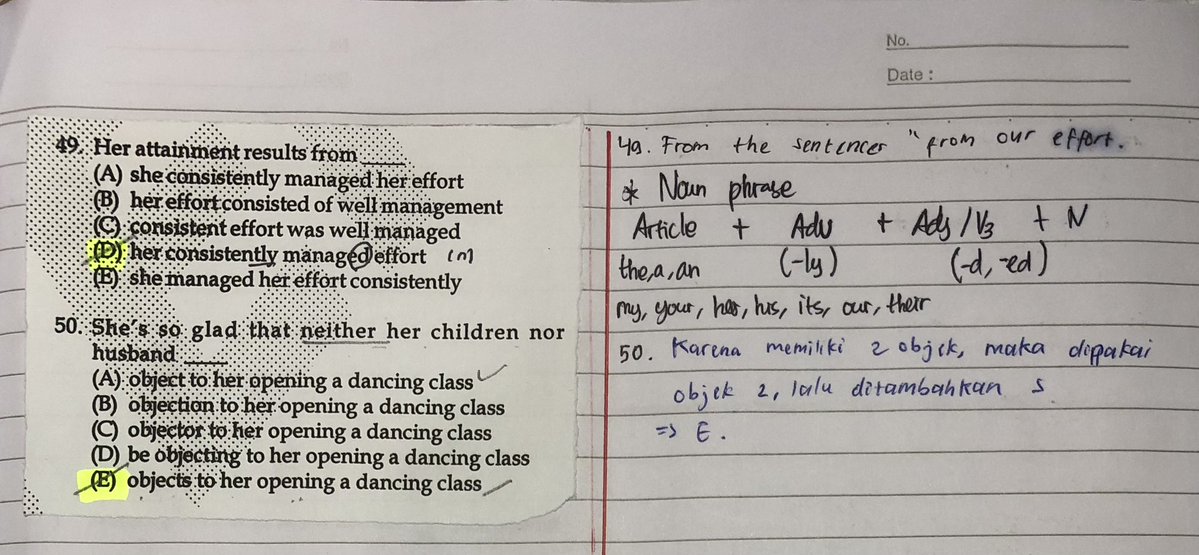 No.
Date :
49. Her attainment results from ____.
(A) she consistently managed her effort
(B) her effort consisted of well management
(C) consistent effort was well managed
(D) her consistently managed effort (n)
(E) she managed her effort consistently
50. She's so glad that neither her children nor
husband ____
(A) object to her opening a dancing class
(B) objection to her opening a dancing class
(C) objector to her opening a dancing class
(D) be objecting to her opening a dancing class
(E) objects to her opening a dancing class
49. From the sentencer "from our effort.
* Noun phrase
Article + Adv + Adj / V3 + N
the, a, an (-ly) (-d, -ed)
my, your, her, his, its, our, their
50. Karena memiliki 2 objek, maka dipakai
objek 2, lalu ditambahkan s
=> E.